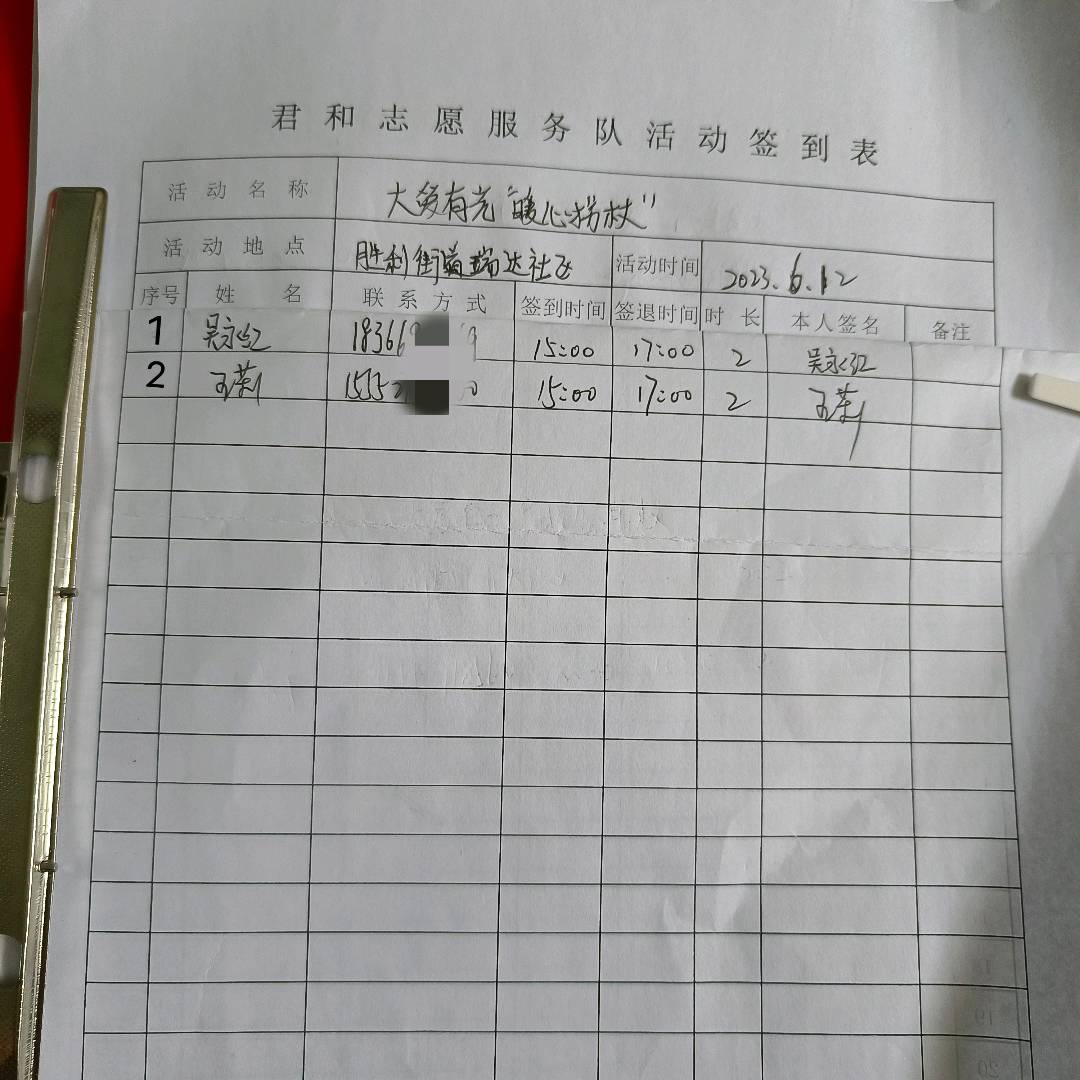 君和志愿服务队活动签到表
活动名称 大爱有光“暖心拐杖”
活动地点 胜利街道瑞达社区 活动时间 2023.6.12
序号 姓名 联系方式 签到时间 签退时间 时长 本人签名 备注
1 吴永红 18366 15:00 17:00 2 吴永红
2 王莉 1535 15:00 17:00 2 王莉